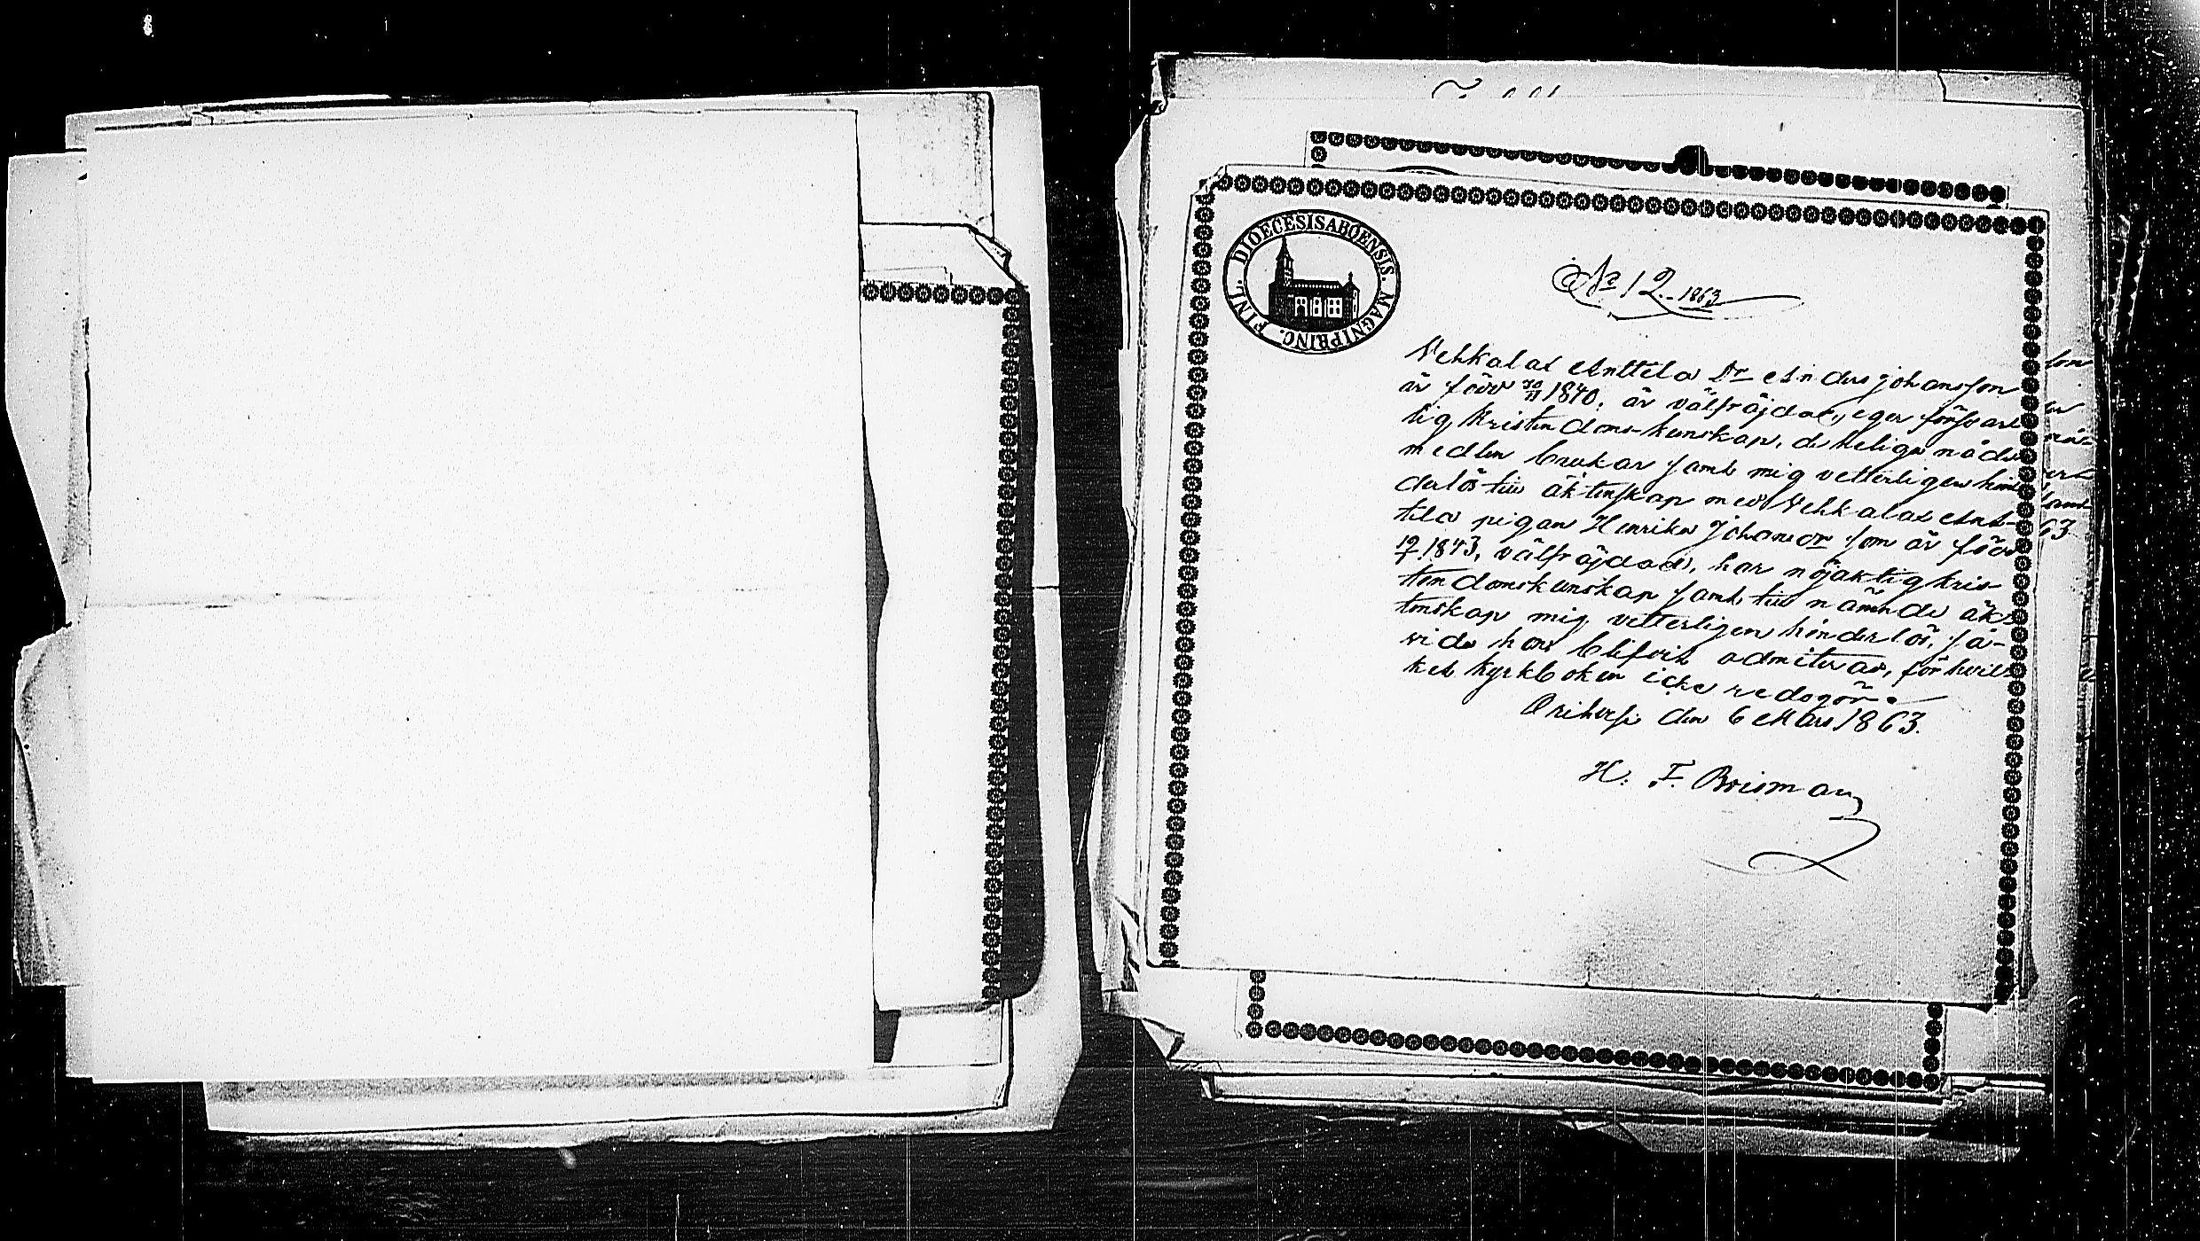 DIOECESIS ABOENSIS. MAGNI PRINC. FINL.
No 12. 1863
Vehkalax Anttila Dr. Andus Johansson
är född 30/11 1840, är välfräjdad, eger försvar-
lig Kristendoms-kunskap, de heliga nåde
medlen brukar samt mig vetterligen hin-
derlös till äktenskap med Vehkalax Ant-
tila pigan Henrika Johansdr som är född
1843, välfräjdad, har nöjaktig kris-
tendomskunskap samt till nämnde äk-
tenskap mig vetterligen hinderlös, så-
vida hon blifvit admitterad, för hvil-
ket kyrkboken icke redogör.
Orihvesi den 6 Mars 1863.
H. F. Brisman